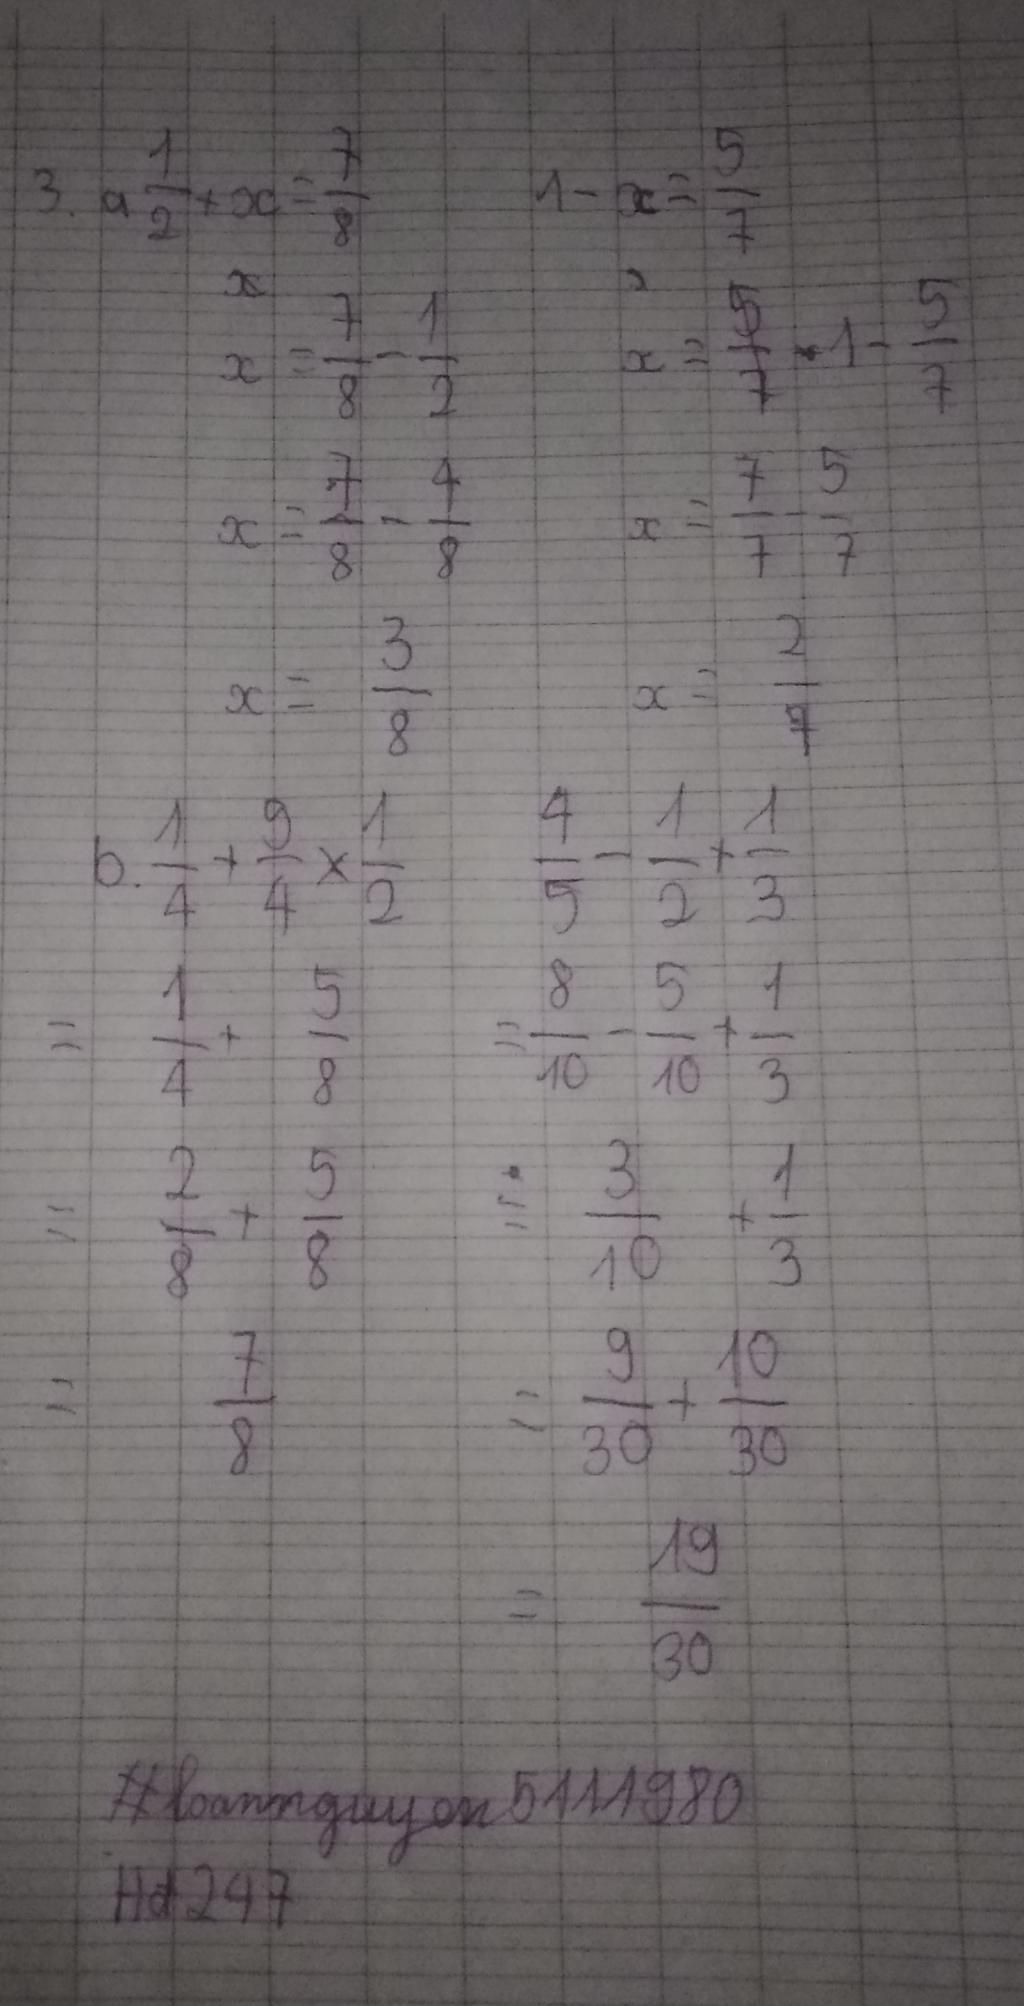 3. a 1/2 + x = 7/8
x
x = 7/8 - 1/2
x = 7/8 - 4/8
x = 3/8
1 - x = 5/7
x = 5/7 - 1 - 5/7
x = 7/7 - 5/7
x = 2/7
b. 1/4 + 9/4 x 1/2
= 1/4 + 5/8
= 2/8 + 5/8
= 7/8
4/5 - 1/2 + 1/3
= 8/10 - 5/10 + 1/3
= 3/10 + 1/3
= 9/30 + 10/30
= 19/30
5111980
Hd247